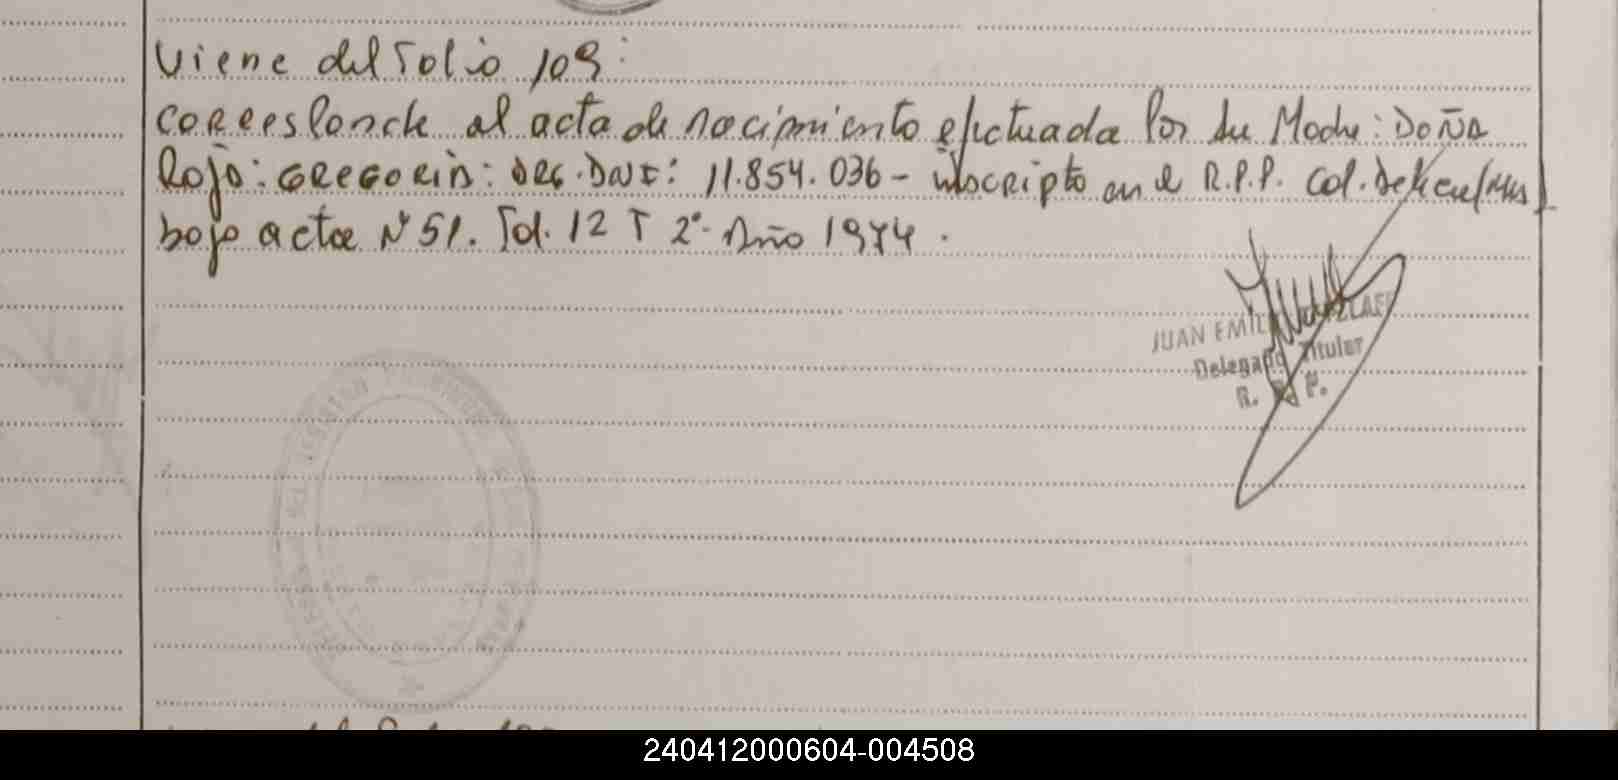 Viene del Folio 109:
Corresponde al acta de nacimiento efectuada Por su Madre: DOÑA
Rojo: GREGORIA: ARG. DNI: 11.854.036 - inscripto en el R.P.P. Col.
bajo acta Nº 51. Fol. 12 T 2º- Año 1974.
JUAN EMILIO
Delegado Titular
R. P. P.
240412000604-004508